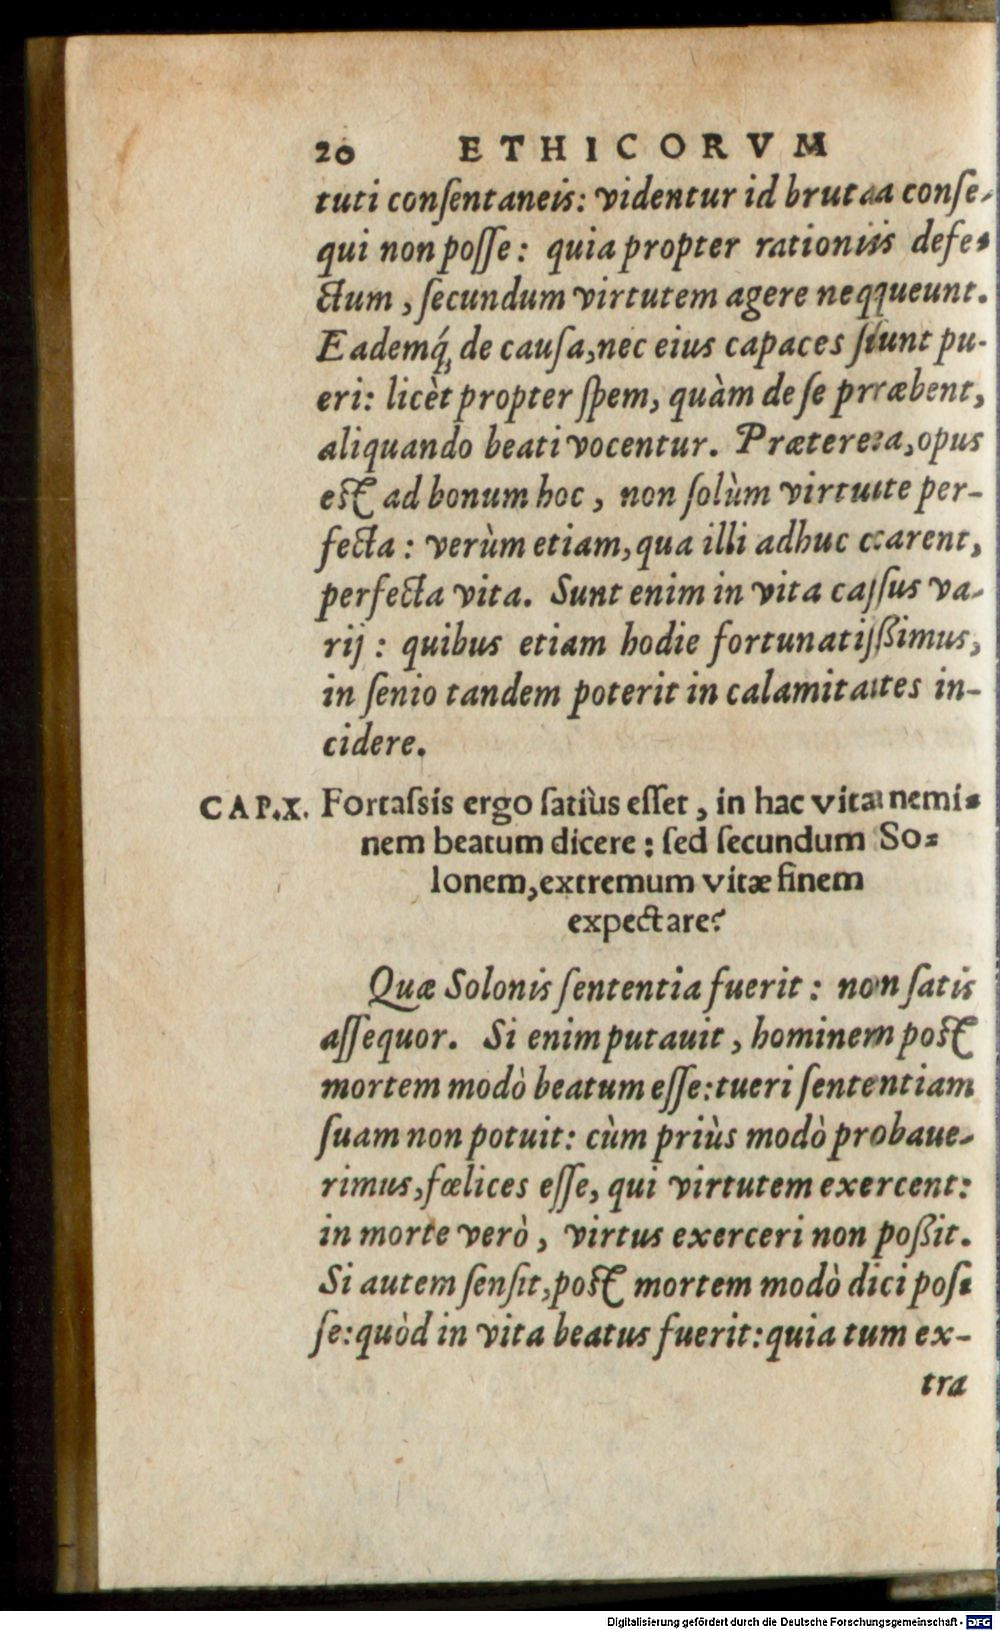 20 ETHICORVM
tuti conſentaneis: videntur id brutaa conſe-
qui non poſſe: quia propter rationiis defe-
ctum, ſecundum virtutem agere neqqueunt.
Eademq́; de cauſa, nec eius capaces ſiunt pu-
eri: licèt propter ſpem, quàm de ſe prræbent,
aliquando beati vocentur. Præterea, opus
eſt ad bonum hoc, non ſolùm virtute per-
fecta: verùm etiam, qua illi adhuc ccarent,
perfecta vita. Sunt enim in vita caſſus va-
rij: quibus etiam hodie fortunatiſſimus,
in ſenio tandem poterit in calamitates in-
cidere.
CAP.X. Fortaſsis ergo ſatiùs eſſet, in hac vita nemi-
nem beatum dicere: ſed ſecundum So-
lonem, extremum vitæ finem
expectare?
Quæ Solonis ſententia fuerit: non ſatis
aſſequor. Si enim putauit, hominem poſt
mortem modò beatum eſſe: tueri ſententiam
ſuam non potuit: cùm priùs modò probaue-
rimus, fœlices eſſe, qui virtutem exercent:
in morte verò, virtus exerceri non poßit.
Si autem ſenſit, poſt mortem modò dici poſ-
ſe: quòd in vita beatus fuerit: quia tum ex-
tra
Digitalisierung gefördert durch die Deutsche Forschungsgemeinschaft - DFG